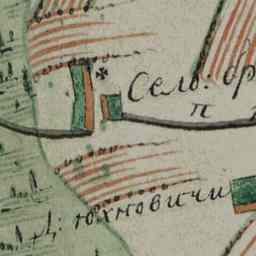 Село: бр
п
д: юхновичи